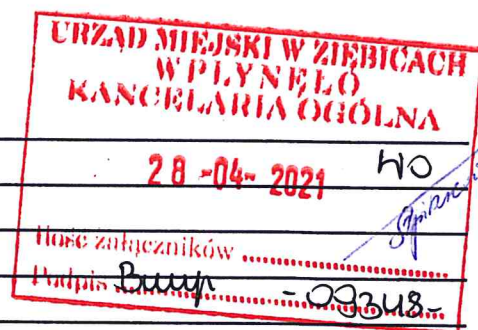 URZĄD MIEJSKI W ZIĘBICACH
WPŁYNĘŁO
KANCELARIA OGÓLNA
28 -04- 2021
Ilość załączników
Podpis